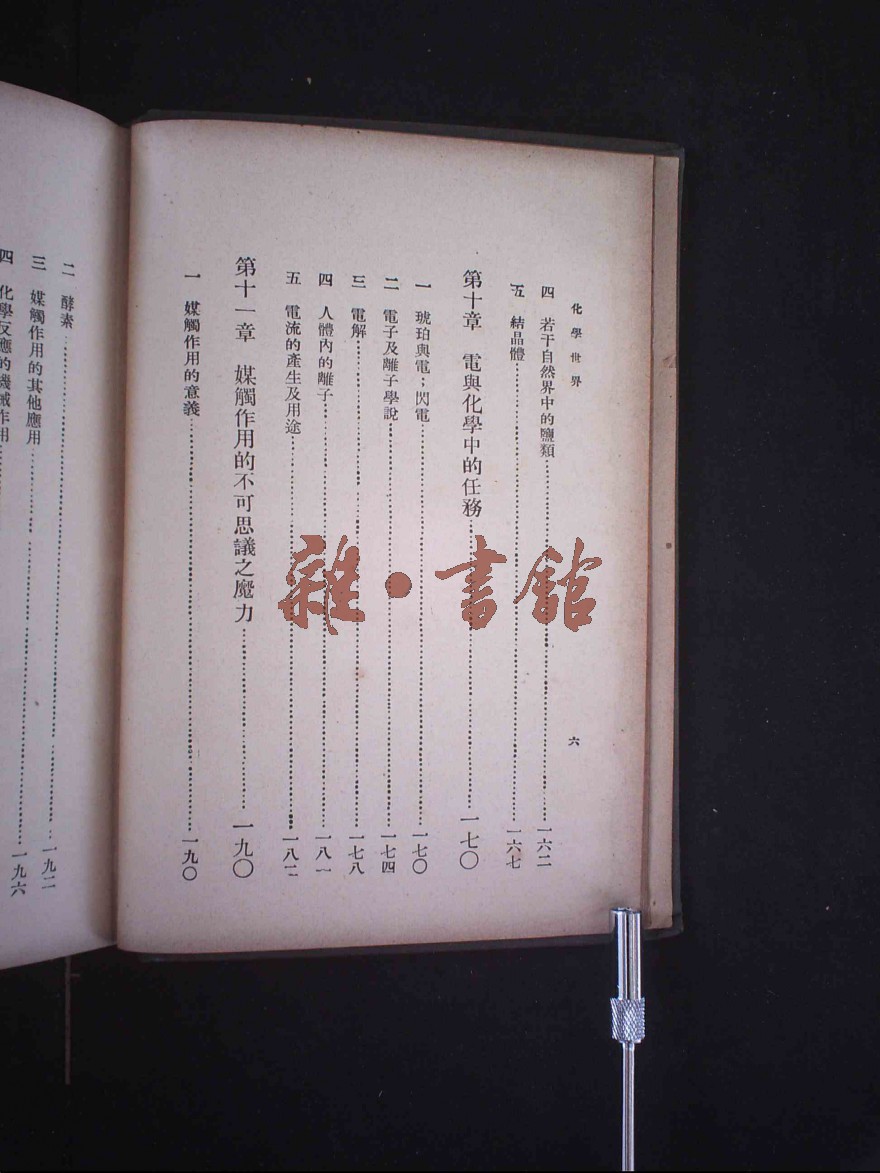 化學世界
六
四 若干自然界中的鹽類 一六二
五 結晶體 一六七
第十章 電與化學中的任務 一七〇
一 琥珀與電；閃電 一七〇
二 電子及離子學說 一七四
三 電解 一七八
四 人體內的離子 一八一
五 電流的產生及用途 一八二
第十一章 媒觸作用的不可思議之魔力 一九〇
一 媒觸作用的意義 一九〇
二 酵素 一九二
三 媒觸作用的其他應用 一九六
四 化學反應的機械作用
雜·書館